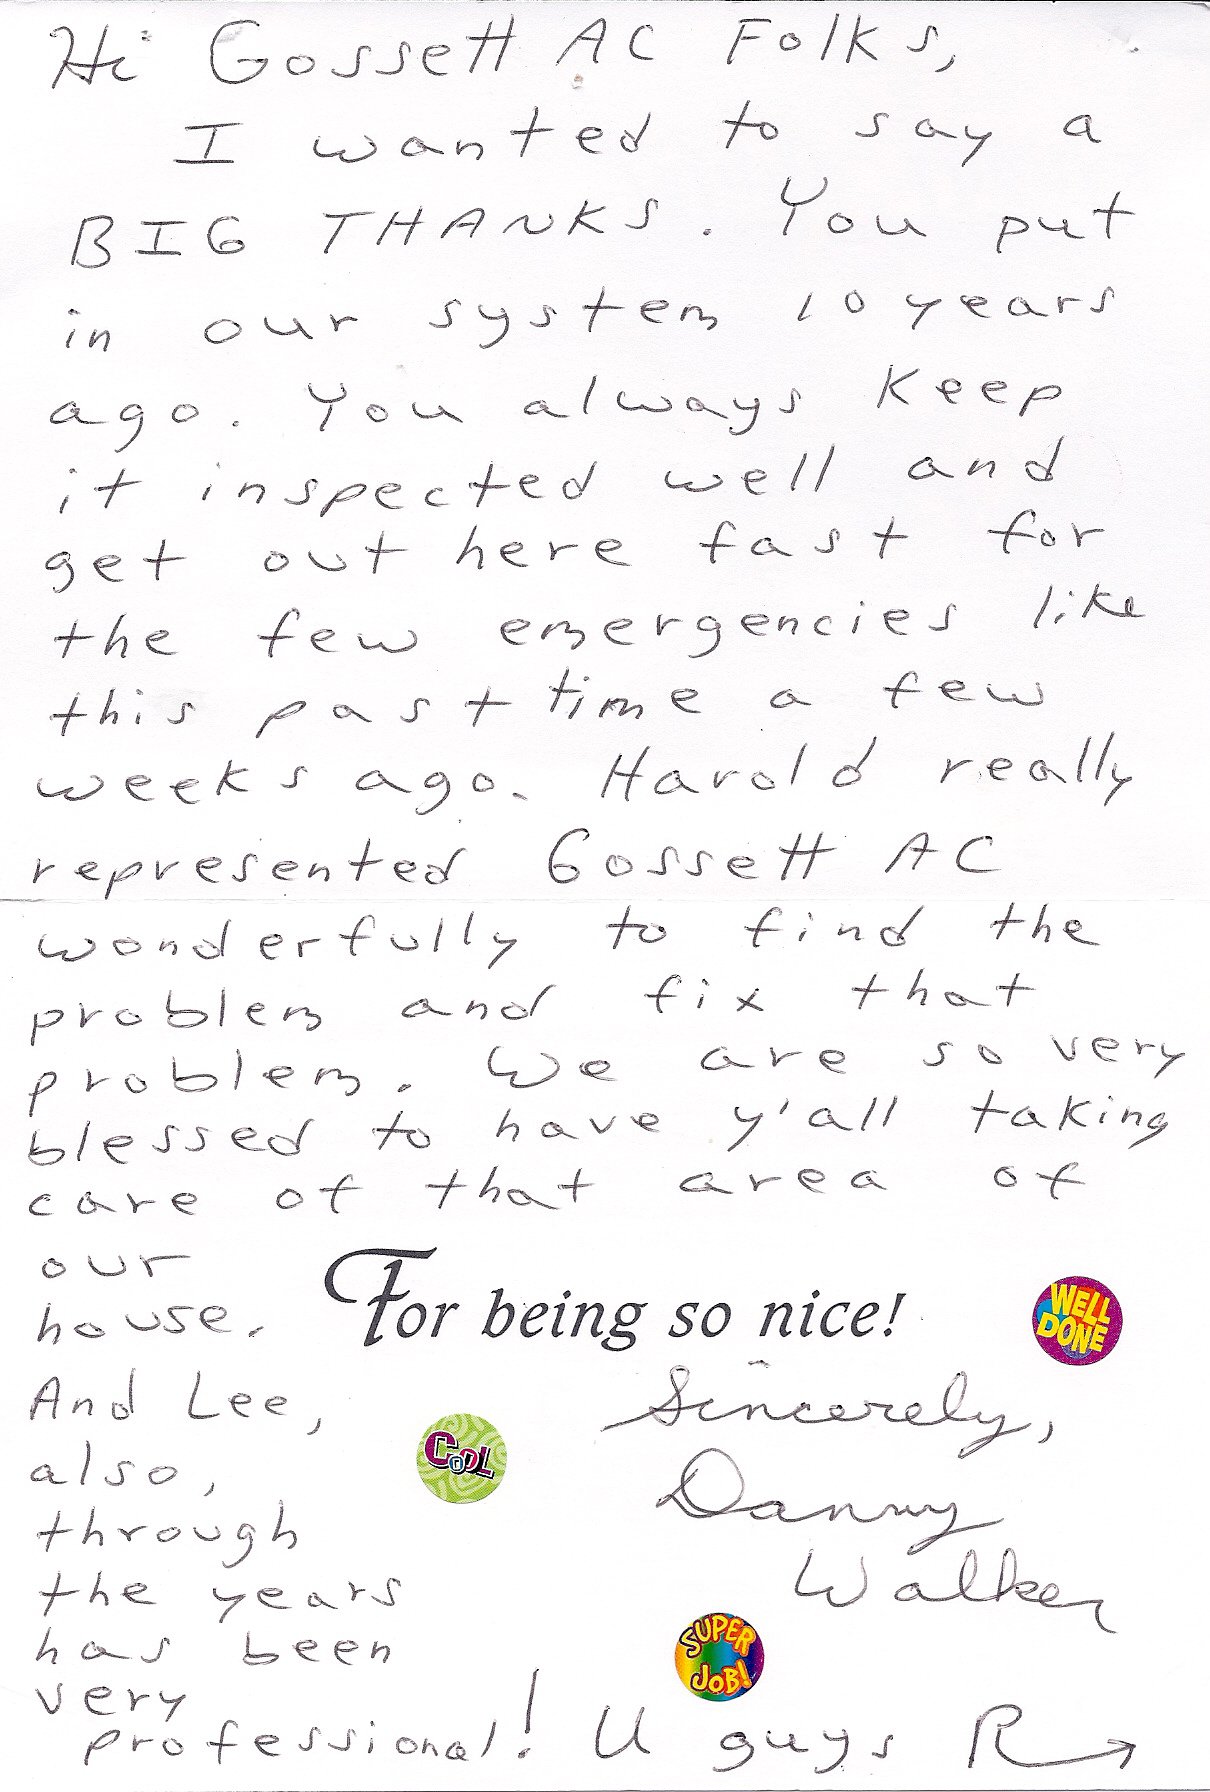 Hi Gossett AC Folks,
I wanted to say a
BIG THANKS. You put
in our system 10 years
ago. You always keep
it inspected well and
get out here fast for
the few emergencies like
this past time a few
weeks ago. Harold really
represented Gossett AC
wonderfully to find the
problem and fix that
problem. We are so very
blessed to have y'all taking
care of that area of
our
house.
For being so nice!
WELL
DONE
And Lee,
also,
through
the years
has been
very
professional! U guys R →
COOL
Sincerely,
Danny
Walker
SUPER
JOB!